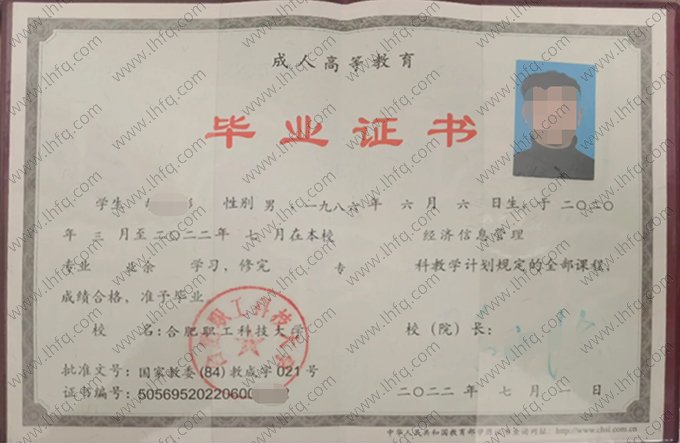 成人高等教育
毕业证书
学生 性别 男 一九八六 年 六 月 六 日生，于 二〇二〇
年 三 月至 二〇二二 年 七 月在本校 经济信息管理
专业 业余 学习，修完 专 科教学计划规定的全部课程，
成绩合格，准予毕业
校 名：合肥职工科技大学 校（院）长：
批准文号：国家教委(84)教成字021号
证书编号：50569520220600 二〇二二 年 七 月 一 日
中华人民共和国教育部学历证书查询网址：http://www.chsi.com.cn
www.lhfq.com